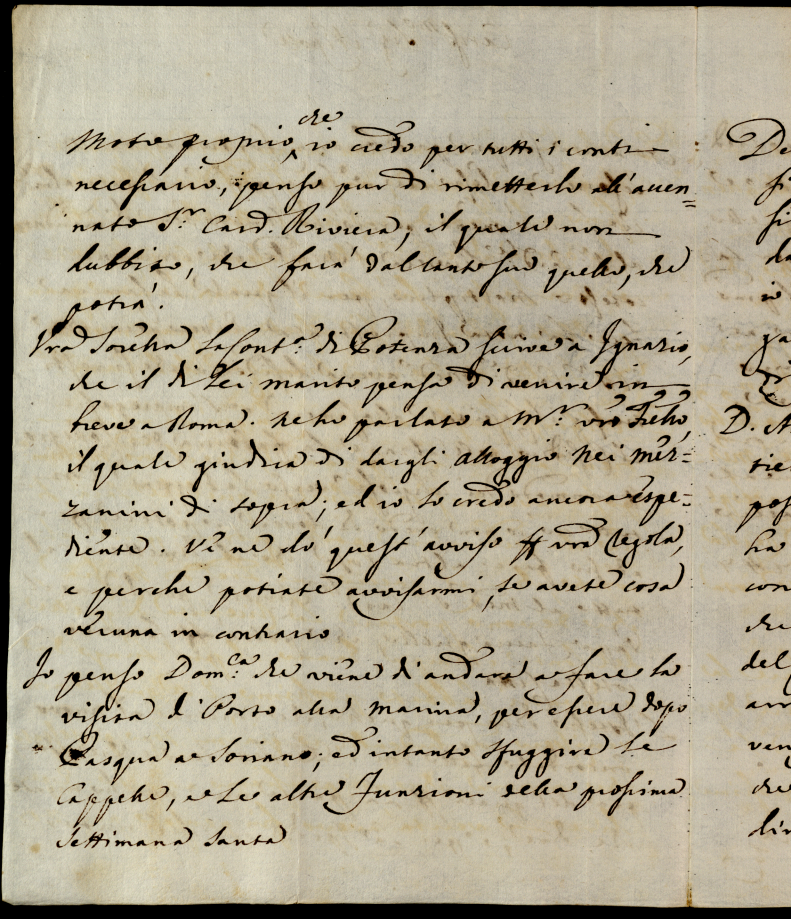 che
Motu proprio, io credo per tutti i conti
necessario, penso pur di rimetterlo all'accen=
nato S.r Card. Riviera, il quale non
dubbito, che farà dal canto suo quello, che
potrà.
Vrã Sorella La Cont.a di Potenza scrive a Ignazio,
che il di Lei marito pensa di venire in
breve a Roma. Ne ho parlato a M.r vrõ Frello,
il quale giudica di dargli alloggio nei mez=
zanini di sopra; ed io lo credo ancora espe=
diente. Ve ne do' quest'avviso per vrã regola,
e perche potiate avvisarmi, se avete cosa
veruna in contrario
Io penso Dom.ca che viene d'andare a fare la
visita d'Porto alla marina, per essere dopo
Pasqua a Soriano; ed intanto sfuggire le
Cappelle, e le altre Funzioni della prossima
Settimana Santa
De
si
si
da
io
ga
D. A
tie
pos
ha
con
che
del
arr
ven
che
lin